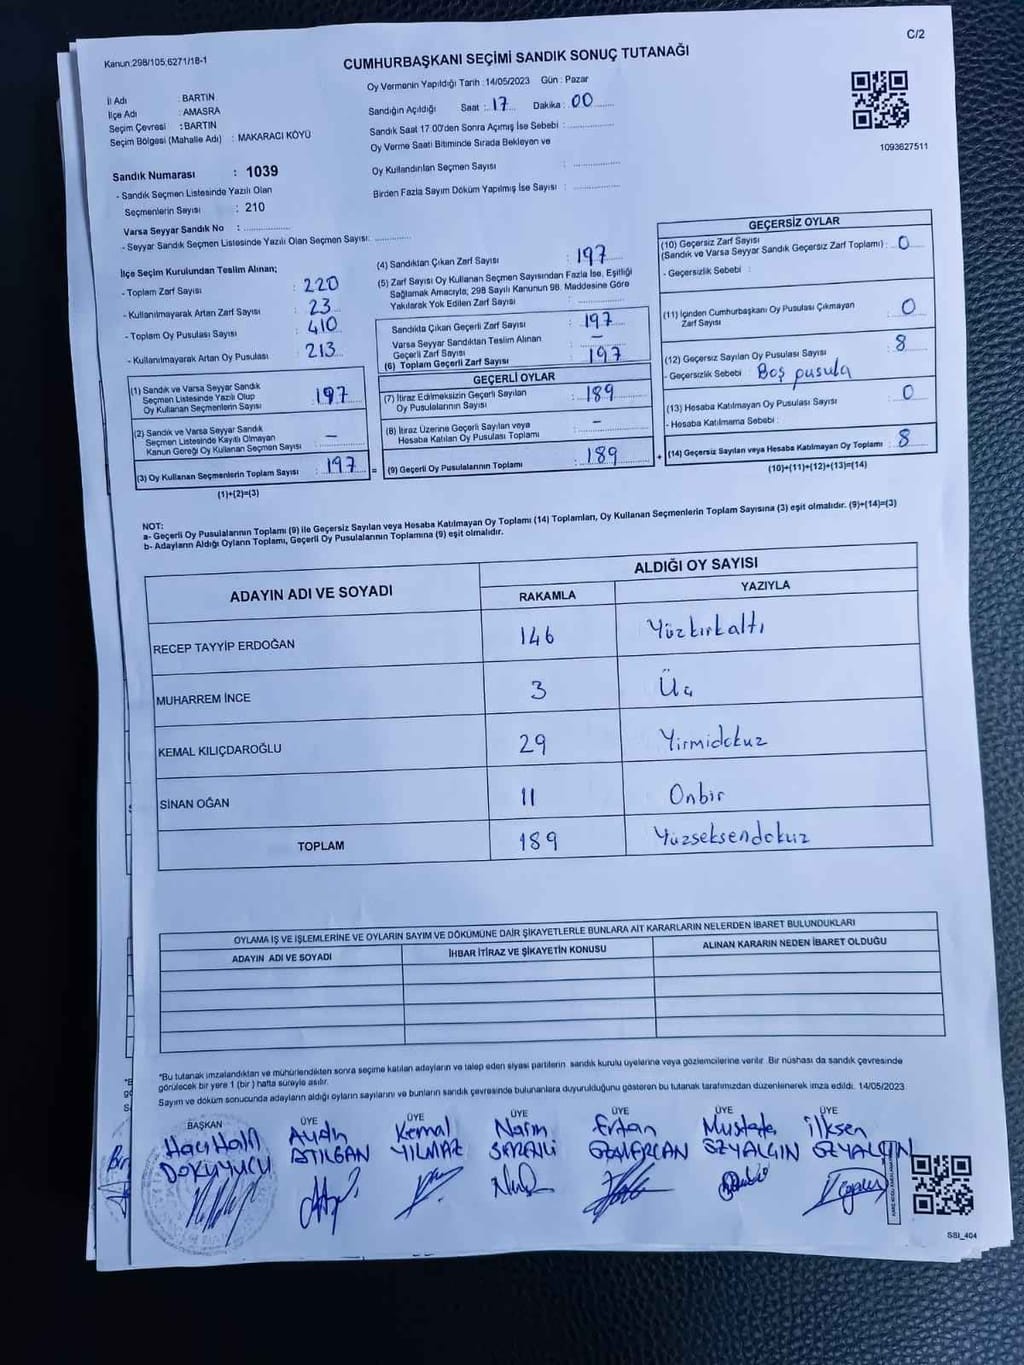 Kanun:298/105,6271/18-1
C/2
CUMHURBAŞKANI SEÇİMİ SANDIK SONUÇ TUTANAĞI
Oy Vermenin Yapıldığı Tarih :14/05/2023 Gün : Pazar
İl Adı : BARTIN
İlçe Adı : AMASRA
Seçim Çevresi : BARTIN
Seçim Bölgesi (Mahalle Adı) : MAKARACI KÖYÜ
Sandığın Açıldığı Saat : 17 Dakika : 00
Sandık Saat 17.00'den Sonra Açımış İse Sebebi :
Oy Verme Saati Bitiminde Sırada Bekleyen ve
Oy Kullandırılan Seçmen Sayısı :
Birden Fazla Sayım Döküm Yapılmış İse Sayısı :
1093627511
Sandık Numarası : 1039
- Sandık Seçmen Listesinde Yazılı Olan
Seçmenlerin Sayısı : 210
Varsa Seyyar Sandık No :
- Seyyar Sandık Seçmen Listesinde Yazılı Olan Seçmen Sayısı:
İlçe Seçim Kurulundan Teslim Alınan;
- Toplam Zarf Sayısı : 220
- Kullanılmayarak Artan Zarf Sayısı : 23
- Toplam Oy Pusulası Sayısı : 410
- Kullanılmayarak Artan Oy Pusulası : 213
(1) Sandık ve Varsa Seyyar Sandık
Seçmen Listesinde Yazılı Olup
Oy Kullanan Seçmenlerin Sayısı : 197
(2) Sandık ve Varsa Seyyar Sandık
Seçmen Listesinde Kayıtlı Olmayan
Kanun Gereği Oy Kullanan Seçmen Sayısı : –
(3) Oy Kullanan Seçmenlerin Toplam Sayısı : 197 =
(1)+(2)=(3)
(4) Sandıktan Çıkan Zarf Sayısı : 197
(5) Zarf Sayısı Oy Kullanan Seçmen Sayısından Fazla İse, Eşitliği
Sağlamak Amacıyla; 298 Sayılı Kanunun 98. Maddesine Göre
Yakılarak Yok Edilen Zarf Sayısı :
Sandıkta Çıkan Geçerli Zarf Sayısı : 197
Varsa Seyyar Sandıktan Teslim Alınan
Geçerli Zarf Sayısı : –
(6) Toplam Geçerli Zarf Sayısı : 197
GEÇERLİ OYLAR
(7) İtiraz Edilmeksizin Geçerli Sayılan
Oy Pusulalarının Sayısı : 189
(8) İtiraz Üzerine Geçerli Sayılan veya
Hesaba Katılan Oy Pusulası Toplamı : –
(9) Geçerli Oy Pusulalarının Toplamı : 189 +
GEÇERSİZ OYLAR
(10) Geçersiz Zarf Sayısı
(Sandık ve Varsa Seyyar Sandık Geçersiz Zarf Toplamı) : 0
- Geçersizlik Sebebi :
(11) İçinden Cumhurbaşkanı Oy Pusulası Çıkmayan
Zarf Sayısı : 0
(12) Geçersiz Sayılan Oy Pusulası Sayısı : 8
- Geçersizlik Sebebi : Boş pusula
(13) Hesaba Katılmayan Oy Pusulası Sayısı : 0
- Hesaba Katılmama Sebebi :
(14) Geçersiz Sayılan veya Hesaba Katılmayan Oy Toplamı : 8
(10)+(11)+(12)+(13)=(14)
NOT:
a- Geçerli Oy Pusulalarının Toplamı (9) ile Geçersiz Sayılan veya Hesaba Katılmayan Oy Toplamı (14) Toplamları, Oy Kullanan Seçmenlerin Toplam Sayısına (3) eşit olmalıdır. (9)+(14)=(3)
b- Adayların Aldığı Oyların Toplamı, Geçerli Oy Pusulalarının Toplamına (9) eşit olmalıdır.
ADAYIN ADI VE SOYADI
ALDIĞI OY SAYISI
RAKAMLA YAZIYLA
RECEP TAYYİP ERDOĞAN 146 Yüzkırkaltı
MUHARREM İNCE 3 Üç
KEMAL KILIÇDAROĞLU 29 Yirmidokuz
SİNAN OĞAN 11 Onbir
TOPLAM 189 Yüzseksendokuz
OYLAMA İŞ VE İŞLEMLERİNE VE OYLARIN SAYIM VE DÖKÜMÜNE DAİR ŞİKAYETLERLE BUNLARA AİT KARARLARIN NELERDEN İBARET BULUNDUKLARI
ADAYIN ADI VE SOYADI
İHBAR İTİRAZ VE ŞİKAYETİN KONUSU
ALINAN KARARIN NEDEN İBARET OLDUĞU
*Bu tutanak imzalandıktan ve mühürlendikten sonra seçime katılan adayların ve talep eden siyasi partilerin sandık kurulu üyelerine veya gözlemcilerine verilir. Bir nüshası da sandık çevresinde
görülecek bir yere 1 (bir) hafta süreyle asılır.
Sayım ve döküm sonucunda adayların aldığı oyların sayılarını ve bunların sandık çevresinde bulunanlara duyurulduğunu gösteren bu tutanak tarafımızdan düzenlenerek imza edildi. 14/05/2023
BAŞKAN ÜYE ÜYE ÜYE ÜYE ÜYE ÜYE
Hacı Halil Aydın Kemal Naim Ertan Mustafa İlksen
DOKUYUCU ATILGAN YILMAZ ÖZYALÇIN ÖZYALÇIN
SSI_404